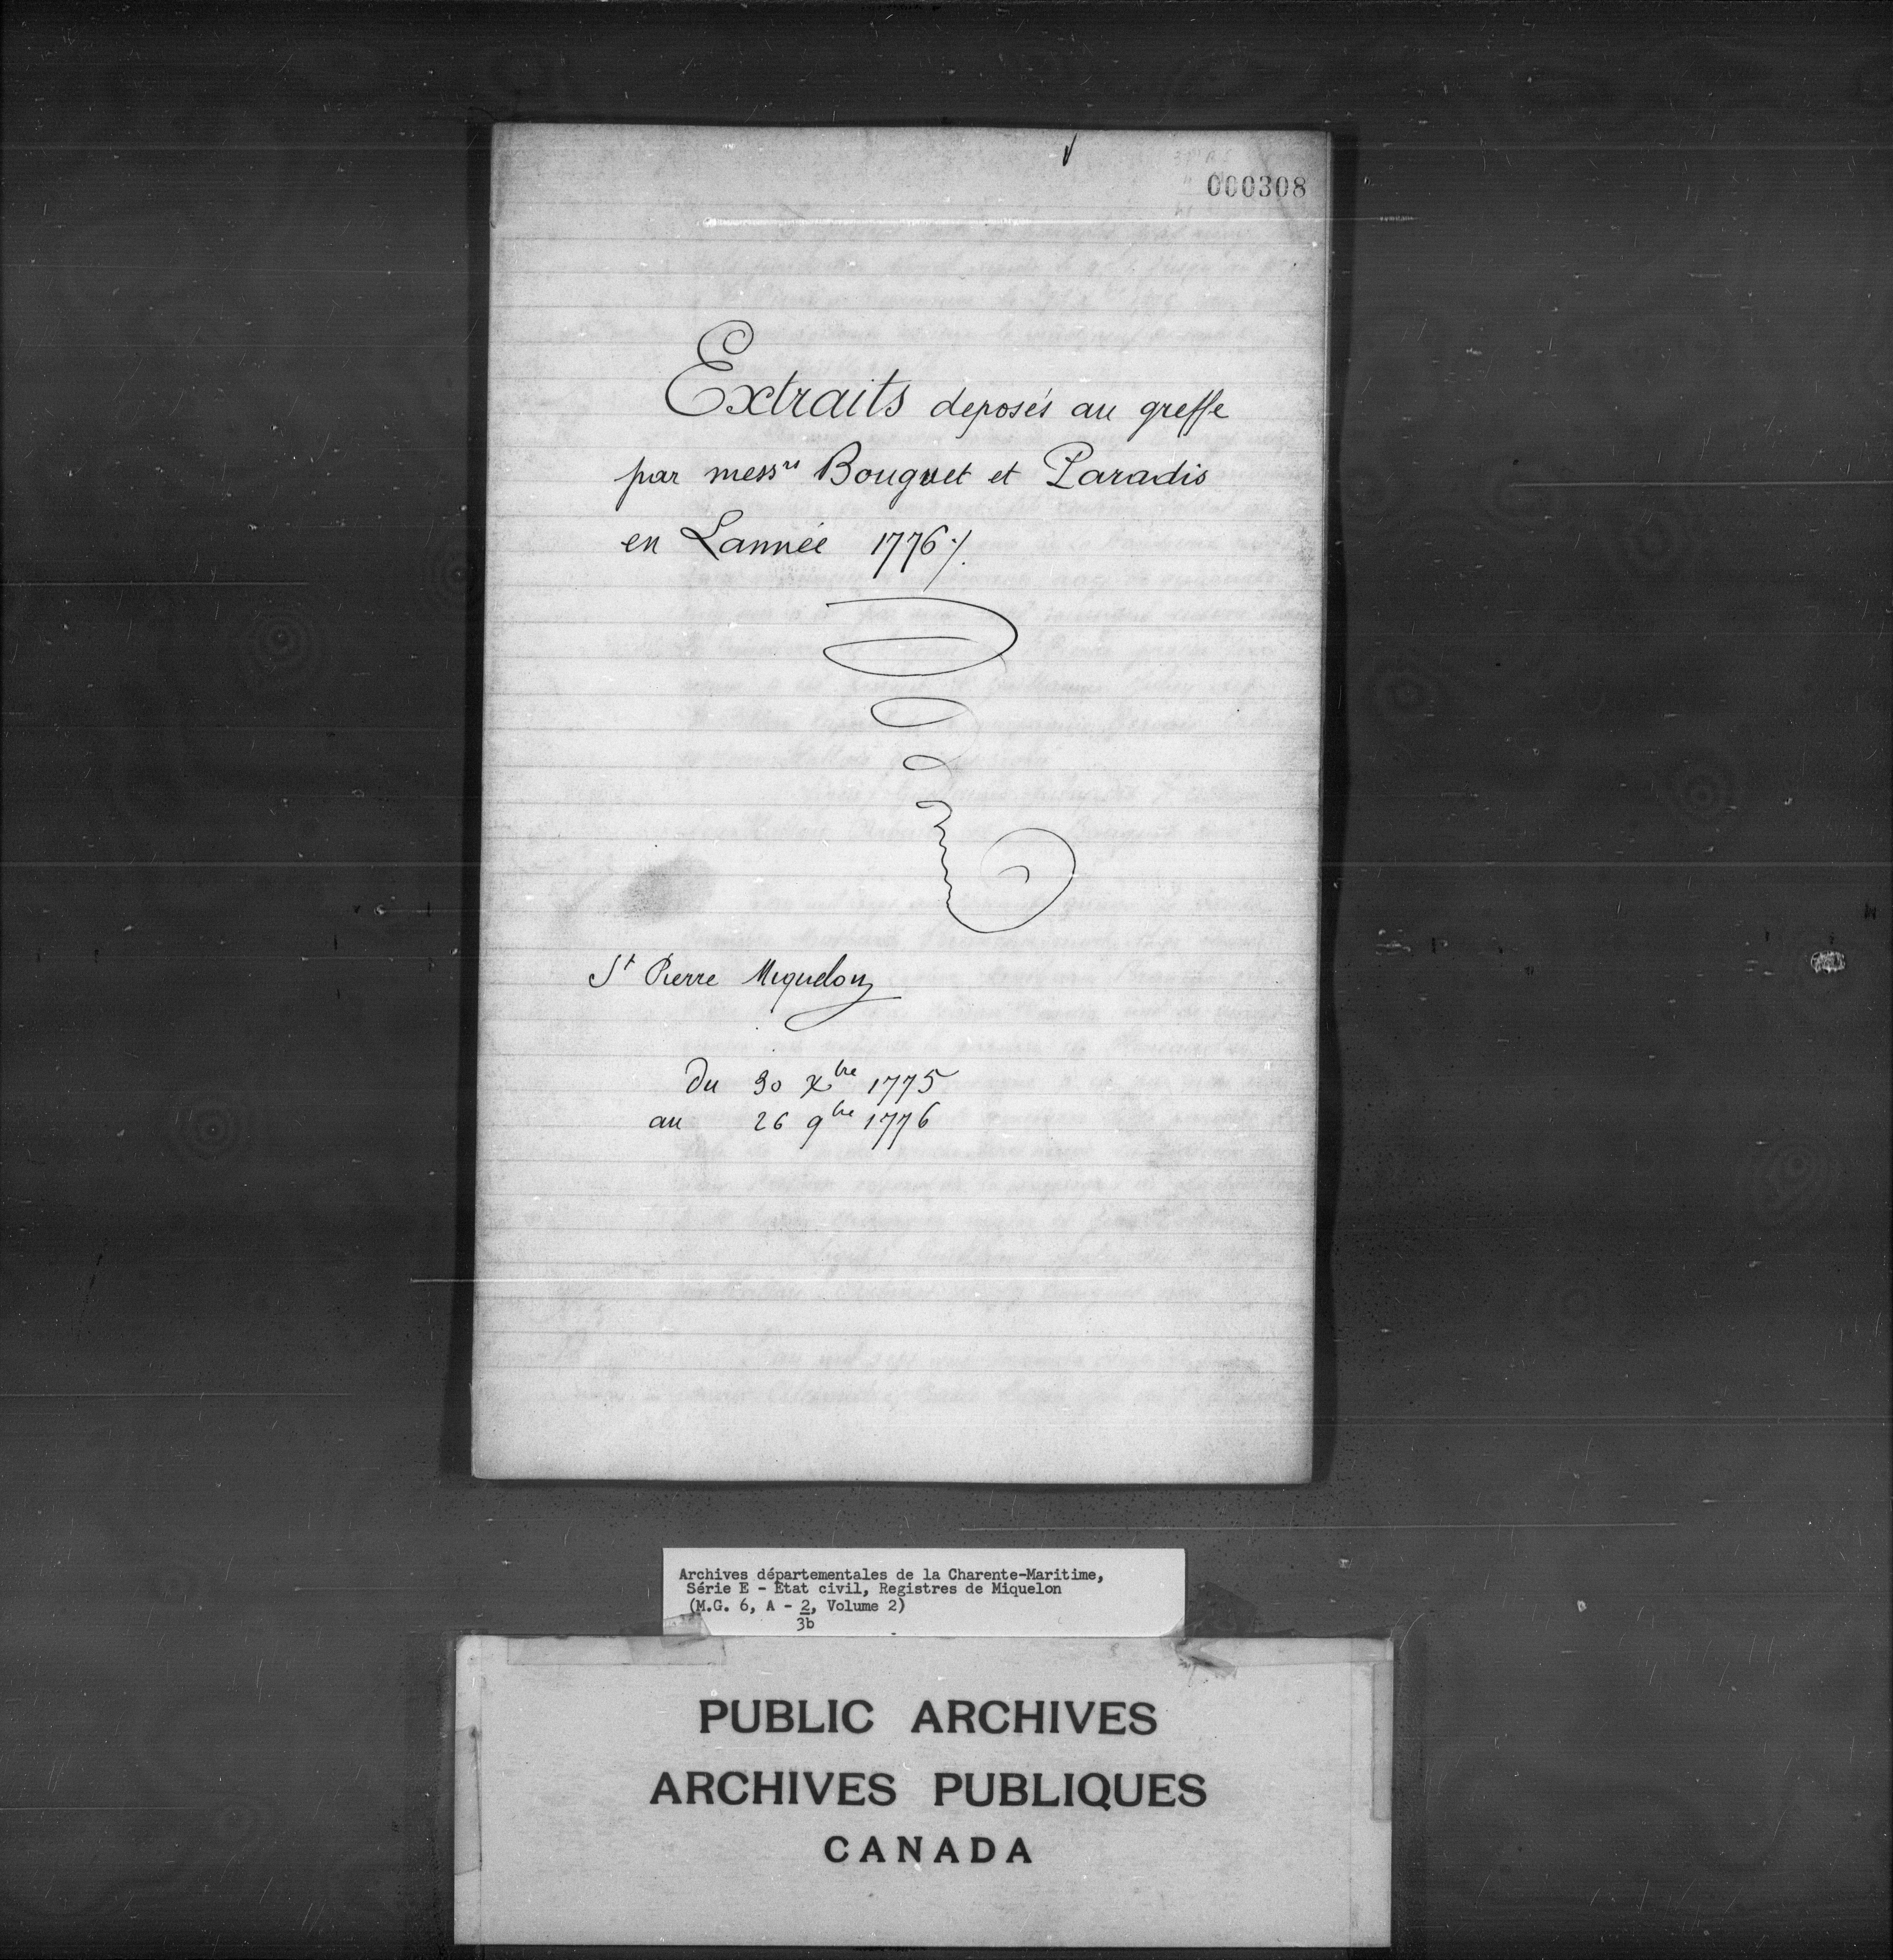 000308
Extraits deposés au greffe
par messrs Bouguet et Paradis
en Lannéé 1776 ./.
St Pierre Miquelon
Du 30 Xbre 1775
au 26 9bre 1776
Archives départementales de la Charente-Maritime,
Série E - État civil, Registres de Miquelon
(M.G. 6, A - 2, Volume 2)
3b
PUBLIC ARCHIVES
ARCHIVES PUBLIQUES
CANADA